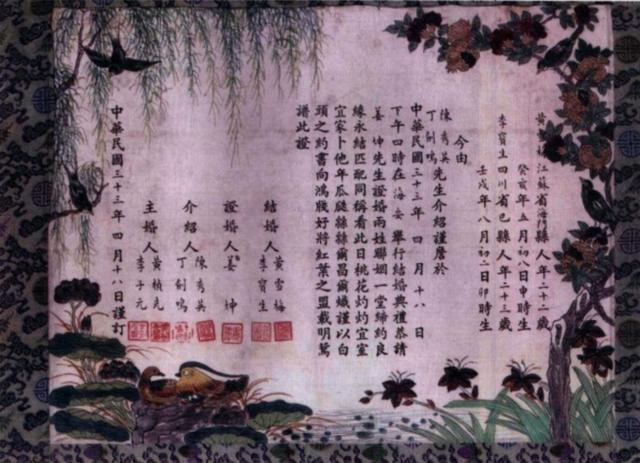 黃雪梅江蘇省海門縣人年二十二歲
癸亥年五月初八日申時生
李寶生四川省巴縣人年二十三歲
壬戌年八月初二日卯時生
今由
陳秀英
丁劍鳴先生介紹謹詹於
中華民國三十三年四月十八日
下午四時在海安舉行結婚典禮恭請
姜坤先生證婚兩姓聯姻一堂締約良
緣永結匹配同稱看此日桃花灼灼宜室
宜家卜他年瓜瓞緜緜爾昌爾熾謹以白
頭之約書向鴻牋好將紅葉之盟載明鴛
譜此證
結婚人
黃雪梅
李寶生
證婚人姜坤
介紹人
陳秀英
丁劍鳴
主婚人
黃楨
李子元
中華民國三十三年四月十八日謹訂